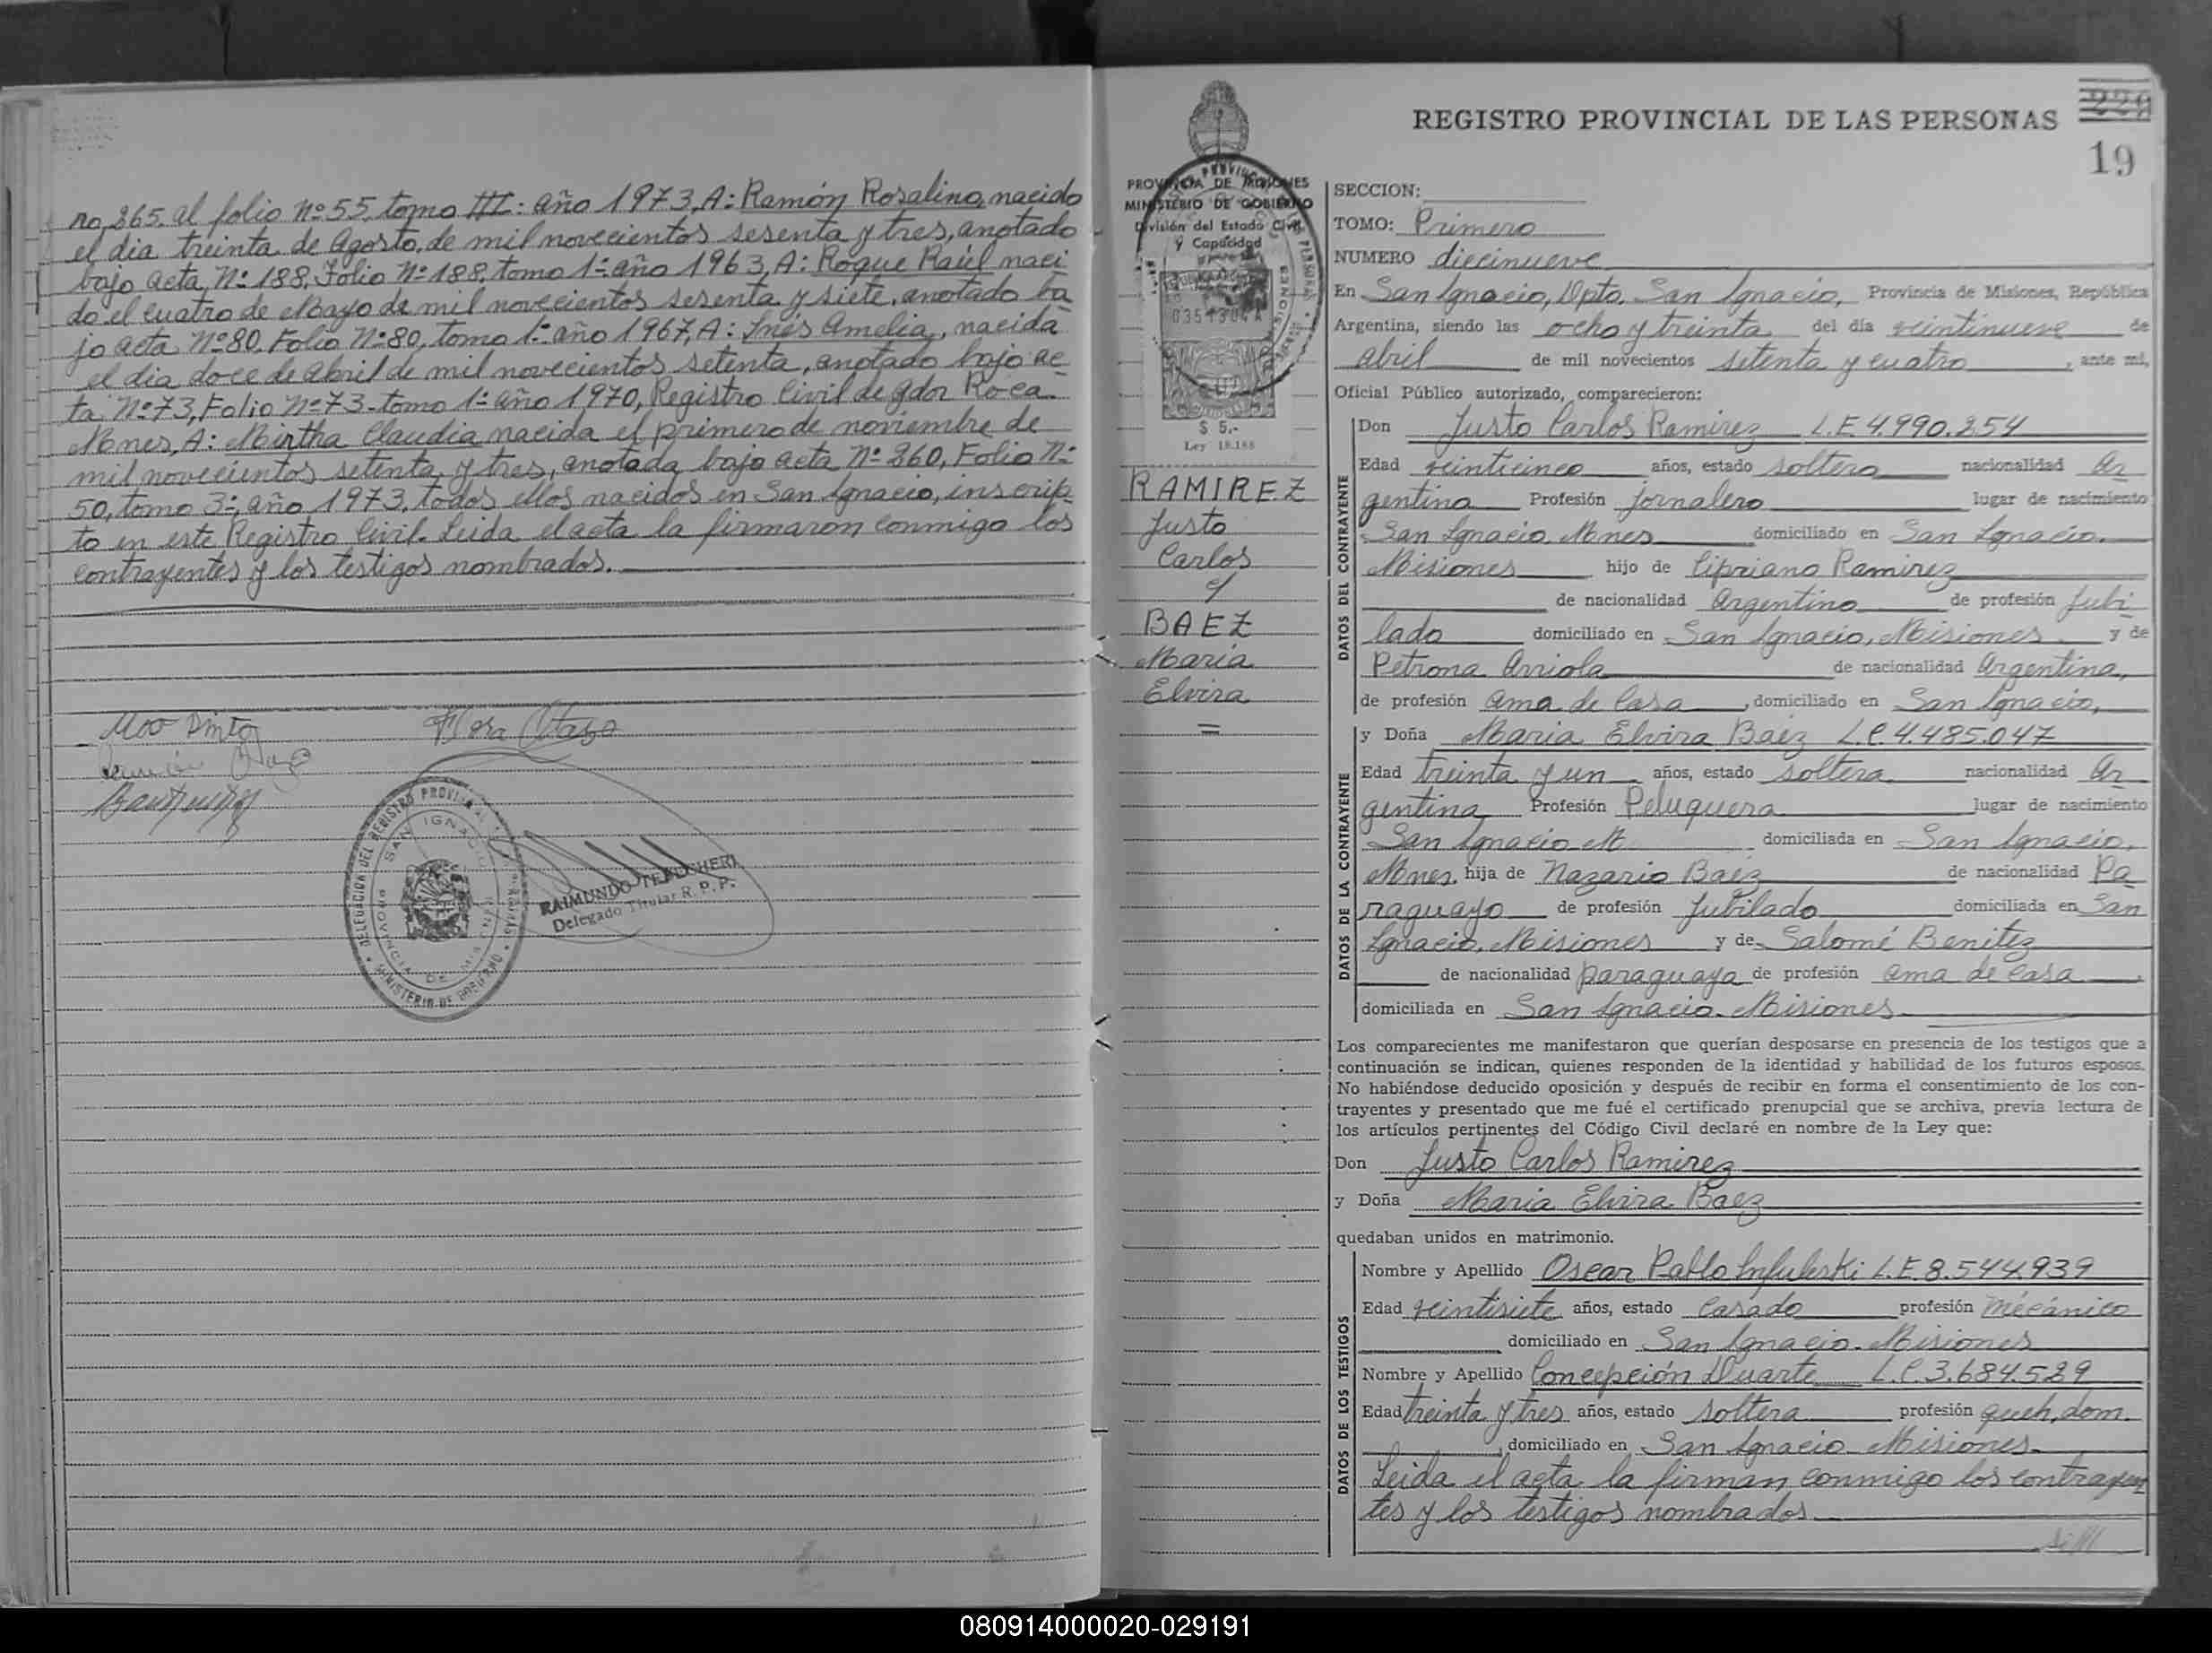 no 265. al folio Nº 55, tomo III: año 1973, A: Ramón Rosalino, nacido
el dia treinta de Agosto, de mil novecientos sesenta y tres, anotado
bajo acta, Nº 188, Folio Nº 188, tomo 1º año 1963, A: Roque Raúl naci
do el cuatro de Mayo de mil novecientos sesenta y siete, anotado ba
jo acta Nº 80. Folio Nº 80, tomo 1º año 1967, A: Inés Amelia, nacida
el dia doce de abril de mil novecientos setenta, anotado bajo ac
ta Nº 73, Folio Nº 73 - tomo 1º año 1970, Registro Civil de Gdor Roca.
Mnes, A: Mirtha Claudia nacida el primero de noviembre de
mil novecientos setenta y tres, anotada bajo acta Nº 260, Folio Nº
50, tomo 3º, año 1973, todos ellos nacidos en San Ignacio, inscrip
to en este Registro Civil. Leida el acta la firmaron conmigo los
contrayentes y los testigos nombrados.
Flora Otazo
DELEGACION DEL REGISTRO PROVINCIAL DE LAS PERSONAS
MINISTERIO DE GOBIERNO
SAN IGNACIO
PROVINCIA DE MISIONES
RAIMUNDO
Delegado Titular R. P. P.
REGISTRO PROVINCIAL DE LAS PERSONAS
229
19
PROVINCIA DE MISIONES
MINISTERIO DE GOBIERNO
División del Estado Civil
y Capacidad
$ 5.-
Ley 18.188
RAMIREZ
Justo
Carlos
c/
BAEZ
Maria
Elvira
=
SECCION:
TOMO: Primero
NUMERO diecinueve
En San Ignacio, Dpto. San Ignacio, Provincia de Misiones, República
Argentina, siendo las ocho y treinta del día veintinueve de
abril de mil novecientos setenta y cuatro, ante mí,
Oficial Público autorizado, comparecieron:
DATOS DEL CONTRAYENTE
Don Justo Carlos Ramirez L.E. 4.990.254
Edad veinticinco años, estado soltero nacionalidad Ar
gentina Profesión jornalero lugar de nacimiento
San Ignacio, Mnes domiciliado en San Ignacio.
Misiones hijo de Cipriano Ramirez
de nacionalidad Argentino de profesión Jubi
lado domiciliado en San Ignacio, Misiones y de
Petrona Arriola de nacionalidad Argentina,
de profesión ama de Casa, domiciliado en San Ignacio,
DATOS DE LA CONTRAYENTE
y Doña Maria Elvira Baez L.C. 4.485.047
Edad treinta y un años, estado soltera nacionalidad Ar
gentina Profesión Peluquera lugar de nacimiento
San Ignacio - M domiciliada en San Ignacio,
Mnes. hija de Nazario Baez de nacionalidad Pa
raguayo de profesión Jubilado domiciliada en San
Ignacio, Misiones y de Salomé Benitez
de nacionalidad paraguaya de profesión ama de Casa,
domiciliada en San Ignacio. Misiones
Los comparecientes me manifestaron que querían desposarse en presencia de los testigos que a
continuación se indican, quienes responden de la identidad y habilidad de los futuros esposos.
No habiéndose deducido oposición y después de recibir en forma el consentimiento de los con-
trayentes y presentado que me fué el certificado prenupcial que se archiva, previa lectura de
los artículos pertinentes del Código Civil declaré en nombre de la Ley que:
Don Justo Carlos Ramirez
y Doña Maria Elvira Baez
quedaban unidos en matrimonio.
DATOS DE LOS TESTIGOS
Nombre y Apellido Oscar Pablo L.E. 8.544.939
Edad veintisiete años, estado Casado profesión Mécánico
domiciliado en San Ignacio. Misiones
Nombre y Apellido Concepción Duarte L.C. 3.684.529
Edad treinta y tres años, estado soltera profesión queh, dom.
, domiciliado en San Ignacio - Misiones.
Leida el acta la firman conmigo los contrayen
tes y los testigos nombrados
080914000020-029191